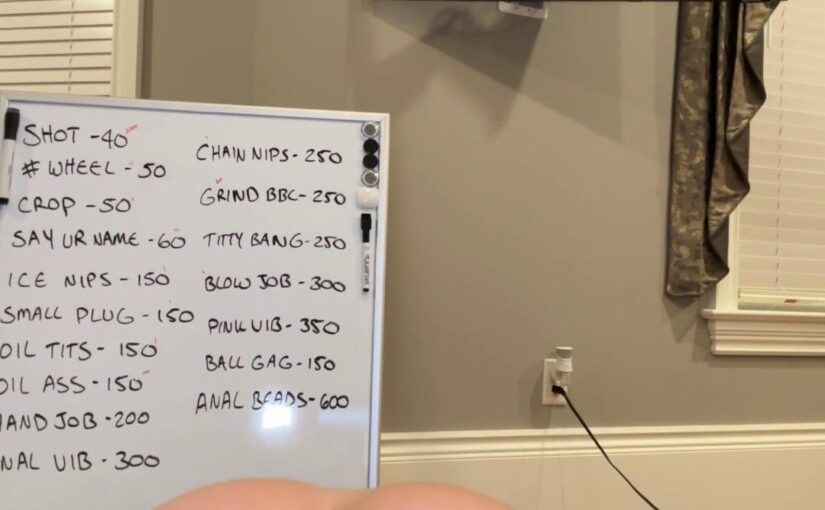 SHOT - 40
# WHEEL - 50
CROP - 50
SAY UR NAME - 60
ICE NIPS - 150
SMALL PLUG - 150
OIL TITS - 150
OIL ASS - 150
HAND JOB - 200
NAL VIB - 300
CHAIN NIPS - 250
GRIND BBC - 250
TITTY BANG - 250
BLOW JOB - 300
PINK VIB - 350
BALL GAG - 150
ANAL BEADS - 600